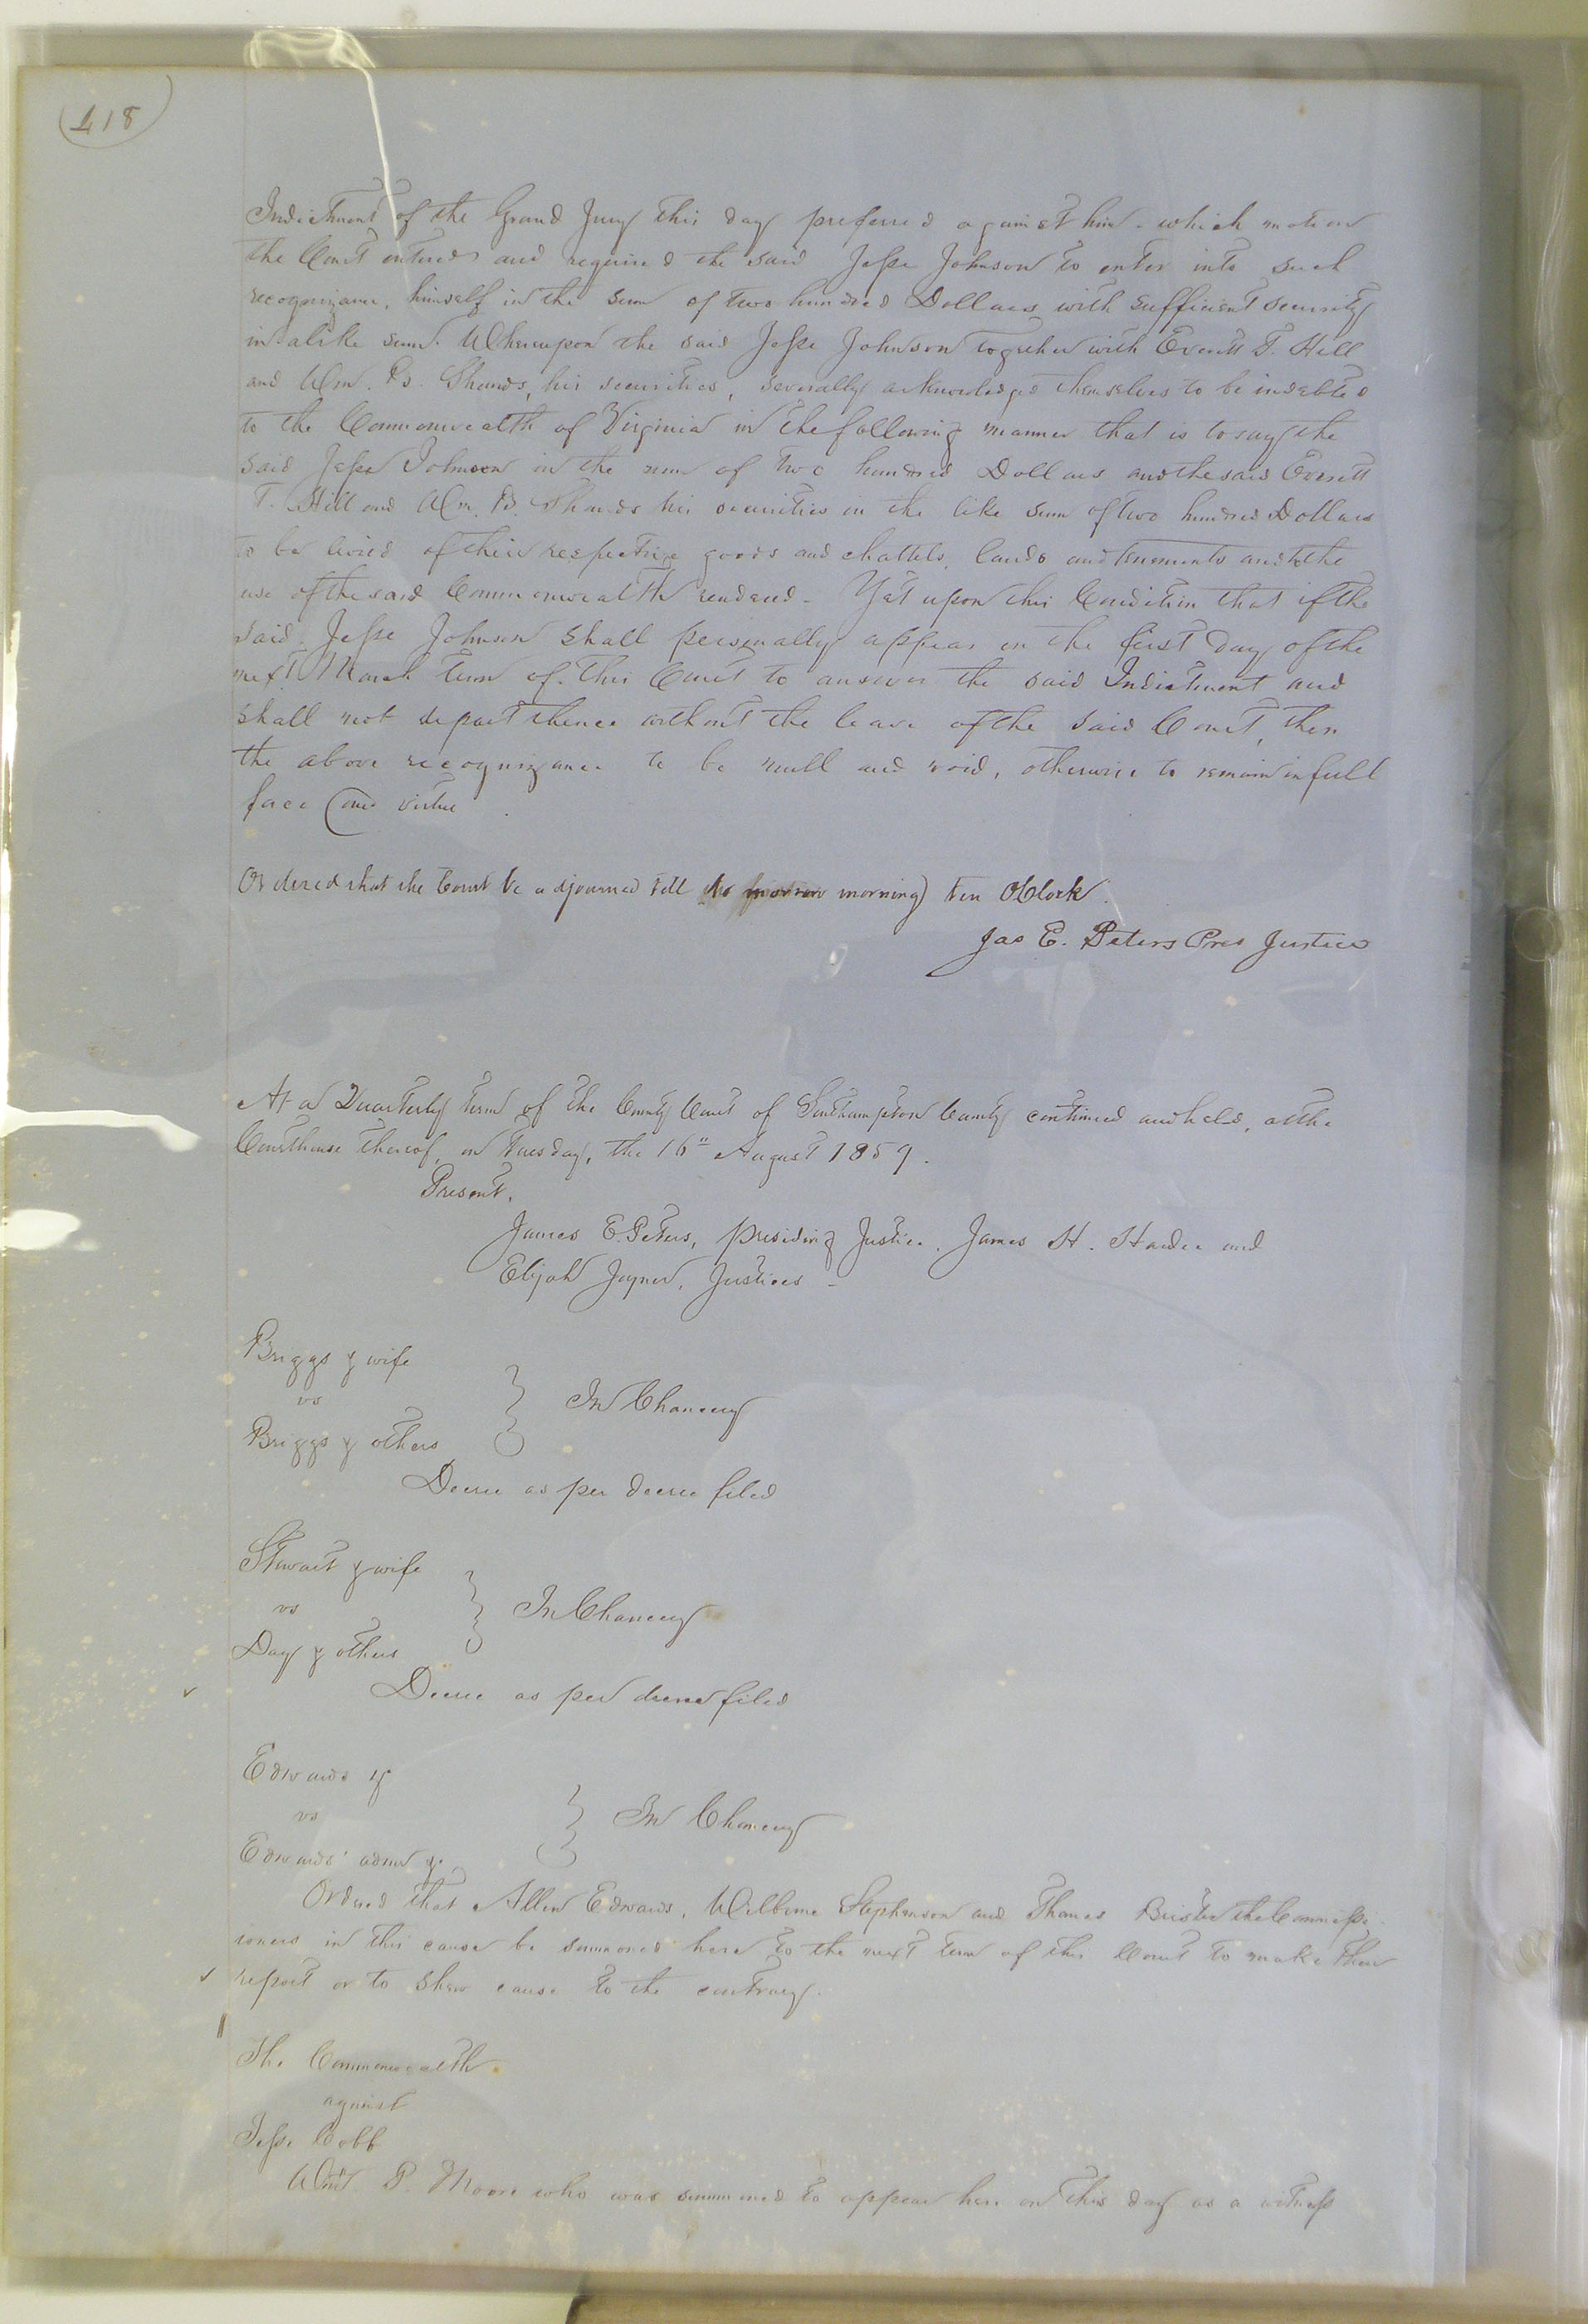 418
Indictment of the Grand Jury this day preferred against him. which motion
the Court entered and required the said Jesse Johnson to enter into such
recognizance, himself in the sum of two hundred Dollars with sufficient security
in alike sum. Whereupon the said Jesse Johnson together with Everett T. Hill
and Wm. B. Shands, his securities, severally acknowledged themselves to be indebted
to the Commonwealth of Virginia in the following manner that is to say the
said Jesse Johnson in the sum of two hundred Dollars and the said Everett
T. Hill and Wm. B. Shands his securities in the like sum of two hundred Dollars
to be levied of their respective goods and chattels, lands and tenements and to the
use of the said Commonwealth rendered - Yet upon this Condition that if the
said Jesse Johnson shall personally appear on the first Day of the
next March term of this Court to answer the said Indictment and
shall not depart thence without the leave of the said Court, then
the above recognizance to be null and void, otherwise to remain in full
force and virtue.
Ordered that the Court be adjourned till to morrow morning ten OClock.
Jas E. Peters Pres Justice
At a Quarterly term of the County Court of Southampton County continued and held, at the
Courthouse thereof, on Tuesday, the 16" August 1859.
Present,
James E. Peters, presiding Justice, James H. Hardee and
Elijah Joyner, Justices -
Briggs & wife
vs
In Chancery
Briggs & others
Decree as per decree filed
Stewart & wife
vs
In Chancery
Day & others
Decree as per decree filed
Edwards &
vs
In Chancery
Edwards' admr &.
Ordered that Allen Edwards, Stephenson and Thomas the Commissi-
ioners in this cause be summoned here to the next term of this Court to make their
report or to shew cause to the contrary.
The Commonwealth
against
Jesse Cobb
Wm. P. Moore who was summoned to appear here on this day as a witness